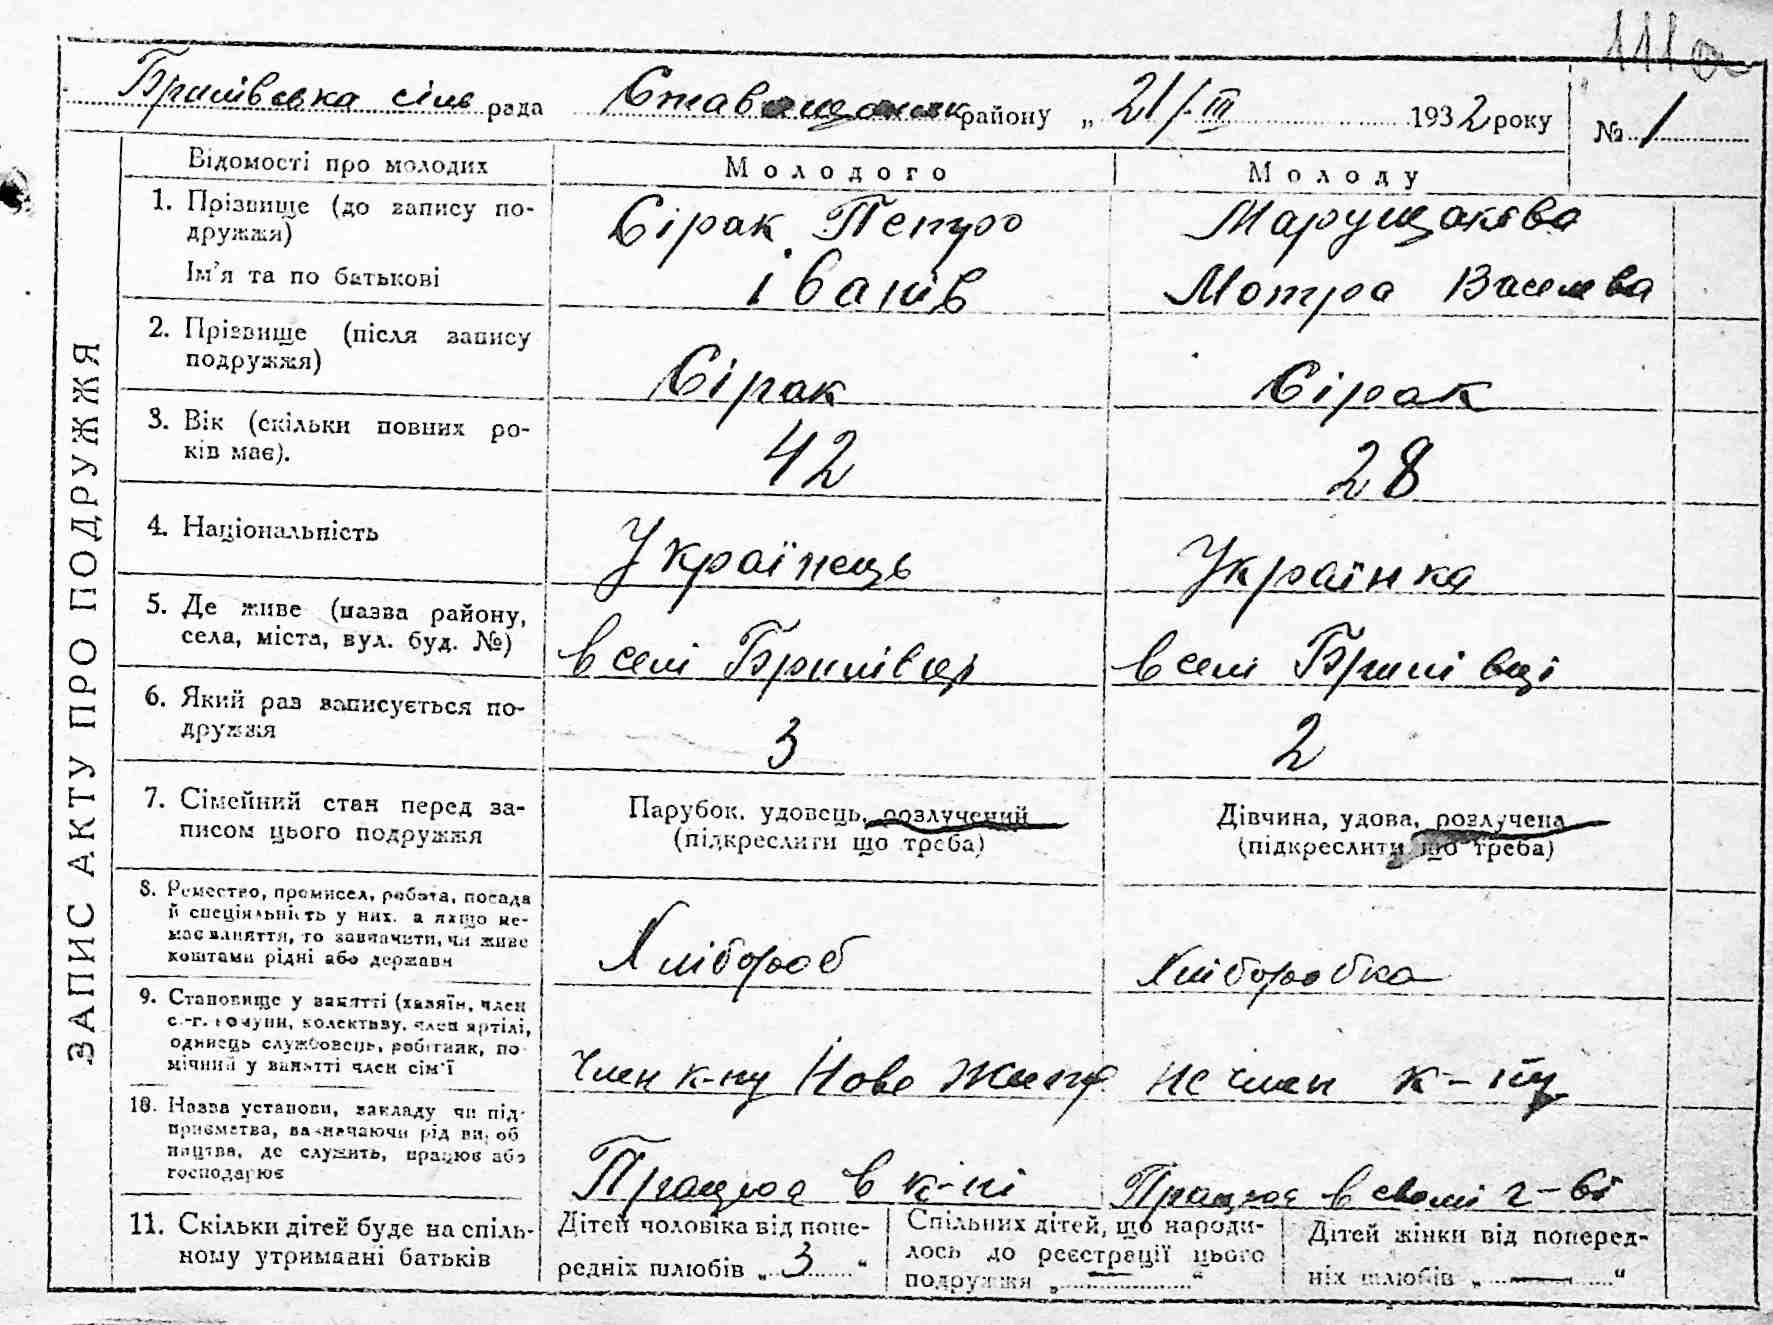 111а
Брилівська сіль рада Ставищанск району „ 21/ III 1932 року № 1
ЗАПИС АКТУ ПРО ПОДРУЖЖЯ
Відомості про молодих Молодого Молоду
1. Прізвище (до запису по-
дружжя)
Ім'я та по батькові
Сірак Петро
іванів
Марущакєва
Мотра Василева
2. Прізвище (після запису
подружжя)
Сірак
Сірак
3. Вік (скільки повних ро-
ків має).
42
28
4. Національність
Українець
Українка
5. Де живе (назва району,
села, міста, вул. буд. №)
в селі Брилівці
в селі Брилівці
6. Який раз записується по-
дружжя
3
2
7. Сімейний стан перед за-
писом цього подружжя
Парубок, удовець, розлучений
(підкреслити що треба)
Дівчина, удова, розлучена
(підкреслити що треба)
8. Ремество, промисел, робота, посада
й спеціяльність у них, а якщо не-
має заняття, то зазначити, чи живе
коштами рідні або держави
Хлібороб
Хліборобка
9. Становище у занятті (хазяїн, член
с.-г. комуни, колективу, член артілі,
одинець службовець, робітник, по-
мічний у занятті член сім'ї
Член к-пу Нове Життя
не член к-пу
10. Назва установи, закладу чи під-
приємства, зазначаючи рід вироб
ництва, де служить, працює або
господарює
Працює в к-пі
Працює в своїм г-ві
11. Скільки дітей буде на спіль-
ному утриманні батьків
Дітей чоловіка від попе-
редніх шлюбів „ 3 “
Спільних дітей, що народи-
лось до реєстрації цього
подружжя „ — “
Дітей жінки від поперед-
ніх шлюбів „ — “